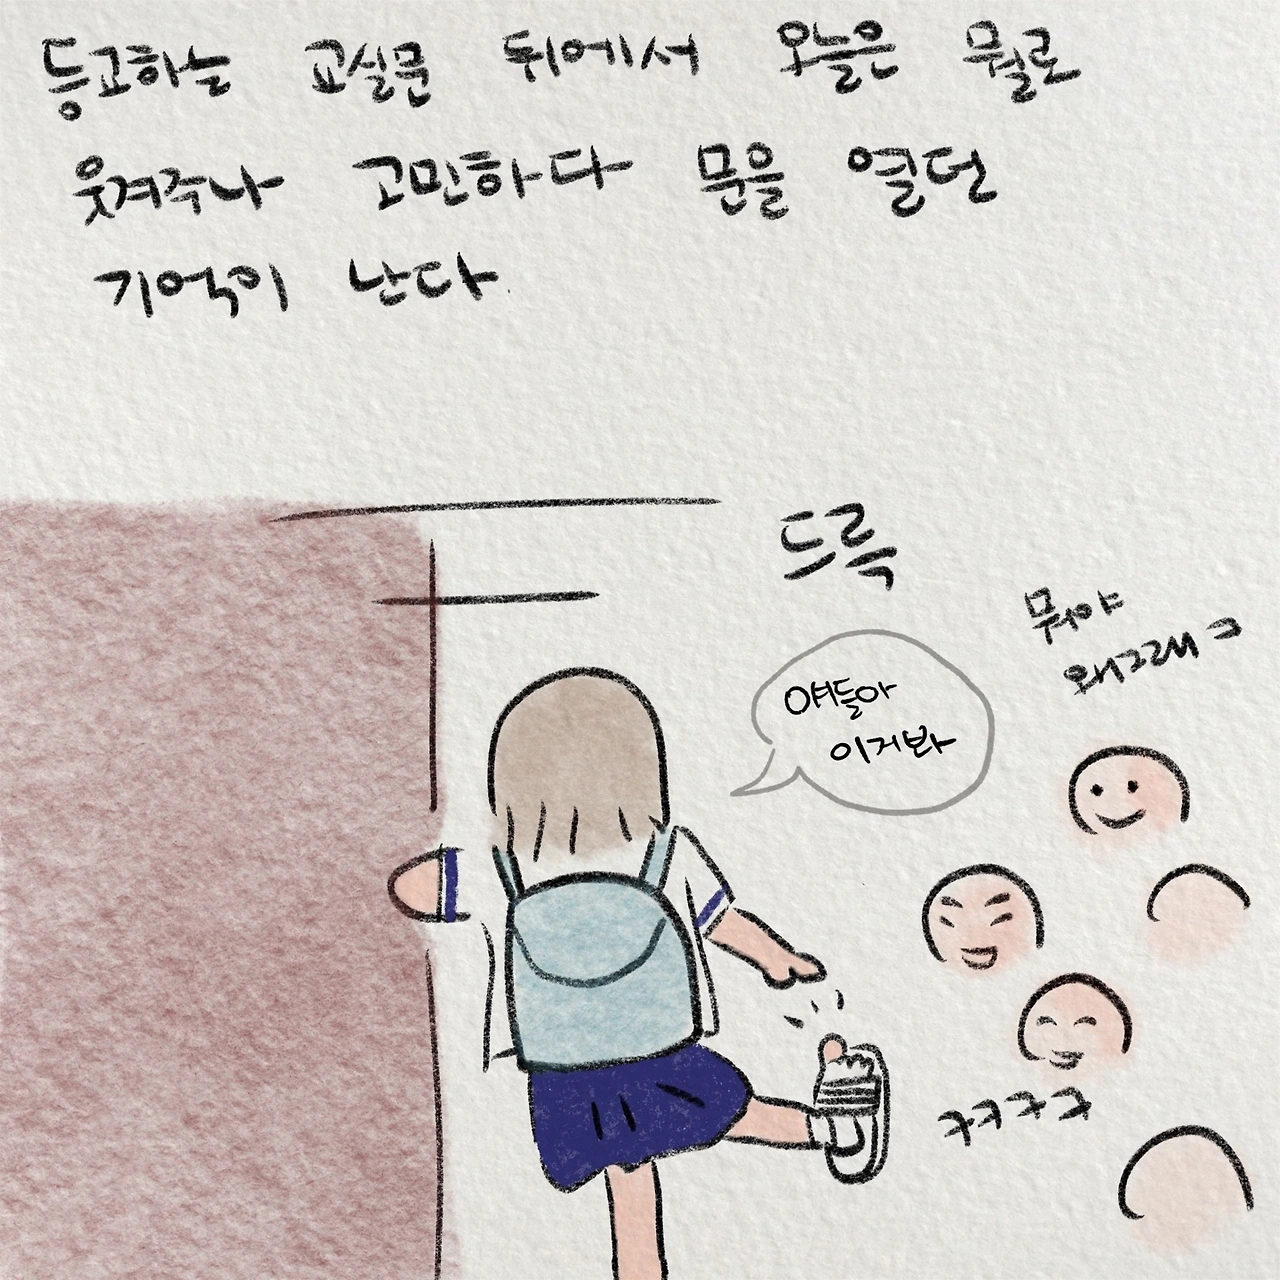 등교하는 교실문 뒤에서 오늘은 뭘로
웃겨주나 고민하다 문을 열던
기억이 난다
드륵
뭐야
왜그래 ㅋ
얘들아
이거봐
ㅋㅋㅋㅋ